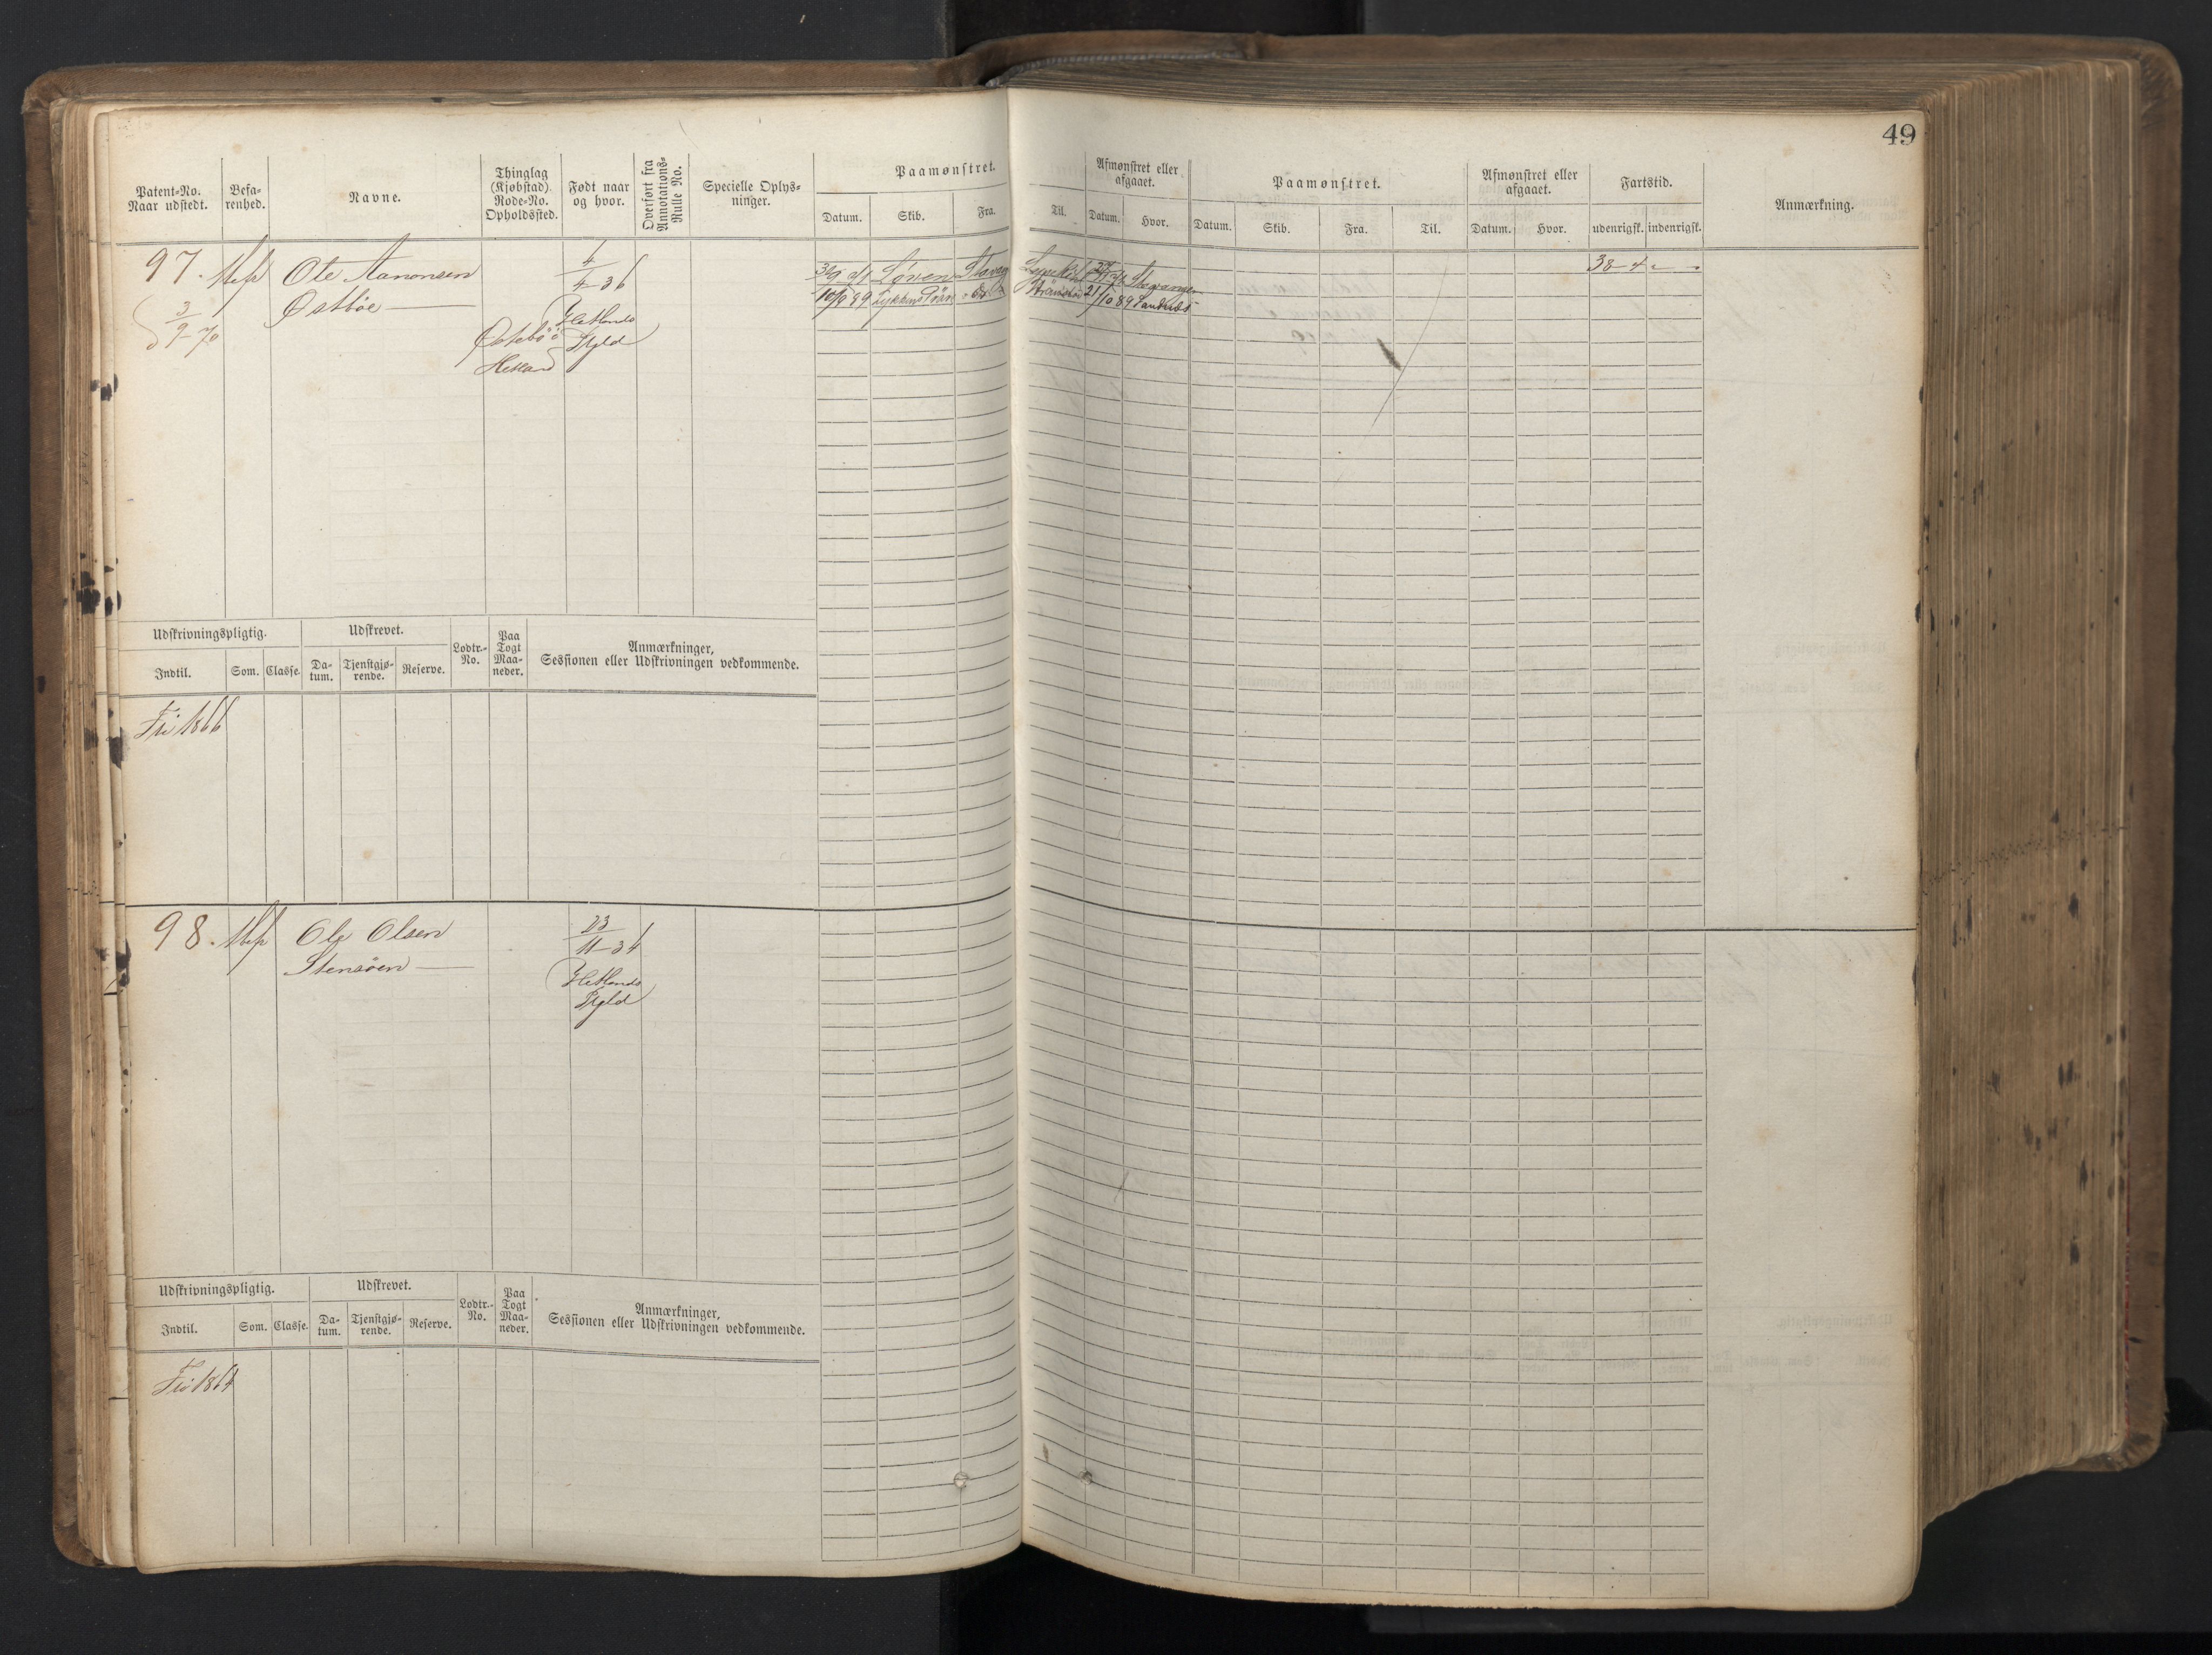 49
Patent-No.
Naar udstedt.
Befa-
renhed.
Navne.
Thinglag
(Kjøbstad).
Rode-No.
Opholdssted.
Født naar
og hvor.
Overført fra
Annotations-
Rulle No.
Specielle Oplys-
ninger.
Paamønstret.
Datum.
Skib.
Fra.
Til.
Afmønstret eller
afgaaet.
Datum.
Hvor.
Paamønstret.
Datum.
Skib.
Fra.
Til.
Afmønstret eller
afgaaet.
Datum.
Hvor.
Fartstid.
udenrigsk.
indenrigsk.
Anmærkning.
97.
3/9-70
Ole Aanonsen
Østbøe
Østebö
Hetland
4/4-36
Hetlands
Pgld
Løven
Stavanger
10/9 89
21/10 89
38-4
Udskrivningspligtig.
Udskrevet.
Indtil.
Som.
Classe.
Da-
tum.
Tjenstgjø-
rende.
Reserve.
Lodtr.-
No.
Paa
Togt
Maa-
neder.
Anmærkninger,
Sessionen eller Udskrivningen vedkommende.
Fri 1866
98.
Ole Olsen
Stensöen
23/11-34
Hetlands
Pgld
Udskrivningspligtig.
Udskrevet.
Indtil.
Som.
Classe.
Da-
tum.
Tjenstgjø-
rende.
Reserve.
Lodtr.-
No.
Paa
Togt
Maa-
neder.
Anmærkninger,
Sessionen eller Udskrivningen vedkommende.
Fri 1864